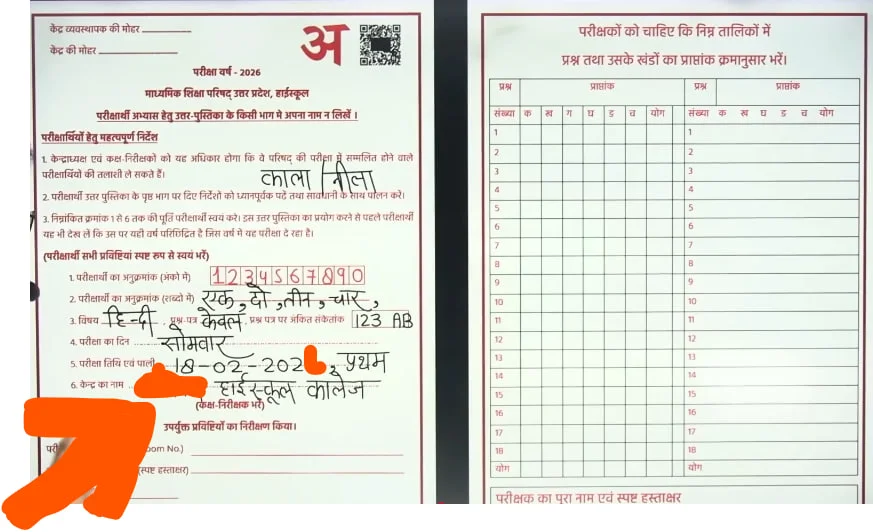 केंद्र व्यवस्थापक की मोहर
केंद्र की मोहर
अ
परीक्षा वर्ष - 2026
माध्यमिक शिक्षा परिषद् उत्तर प्रदेश, हाईस्कूल
परीक्षार्थी अभ्यास हेतु उत्तर-पुस्तिका के किसी भाग मे अपना नाम न लिखें ।
परीक्षार्थियों हेतु महत्वपूर्ण निर्देश
1. केन्द्राध्यक्ष एवं कक्ष-निरीक्षकों को यह अधिकार होगा कि वे परिषद् की परीक्षा में सम्मलित होने वाले
परीक्षार्थियों की तलाशी ले सकते हैं।
काला/नीला
2. परीक्षार्थी उत्तर पुस्तिका के पृष्ठ भाग पर दिए निर्देशों को ध्यानपूर्वक पढ़ें तथा सावधानी के साथ पालन करें।
3. निम्नांकित क्रमांक 1 से 6 तक की पूर्ति परीक्षार्थी स्वयं करे। इस उत्तर पुस्तिका का प्रयोग करने से पहले परीक्षार्थी
यह भी देख ले कि उस पर यही वर्ष परिचिह्नित है जिस वर्ष मे यह परीक्षा दे रहा है।
(परीक्षार्थी सभी प्रविष्टियां स्पष्ट रुप से स्वयं भरें)
1. परीक्षार्थी का अनुक्रमांक (अंको मे) 1234567890
2. परीक्षार्थी का अनुक्रमांक (शब्दो मे) एक, दो, तीन, चार,
3. विषय हिन्दी, प्रश्न-पत्र केवल, प्रश्न पत्र पर अंकित संकेतांक 123 AB
4. परीक्षा का दिन सोमवार
5. परीक्षा तिथि एवं पाली 18-02-202 , प्रथम
6. केन्द्र का नाम हाईस्कूल कालेज
(कक्ष-निरीक्षक भरें)
उपर्युक्त प्रविष्टियों का निरीक्षण किया।
oom No.)
(स्पष्ट हस्ताक्षर)
परीक्षकों को चाहिए कि निम्न तालिकों में
प्रश्न तथा उसके खंडों का प्राप्तांक क्रमानुसार भरें।
प्रश्न प्राप्तांक प्रश्न प्राप्तांक
संख्या क ख ग घ ड च योग संख्या क ख घ ड च योग
1 1
2 2
3 3
4 4
5 5
6 6
7 7
8 8
9 9
10 10
11 11
12 12
13 13
14 14
15 15
16 16
17 17
18 18
योग योग
परीक्षक का पूरा नाम एवं स्पष्ट हस्ताक्षर